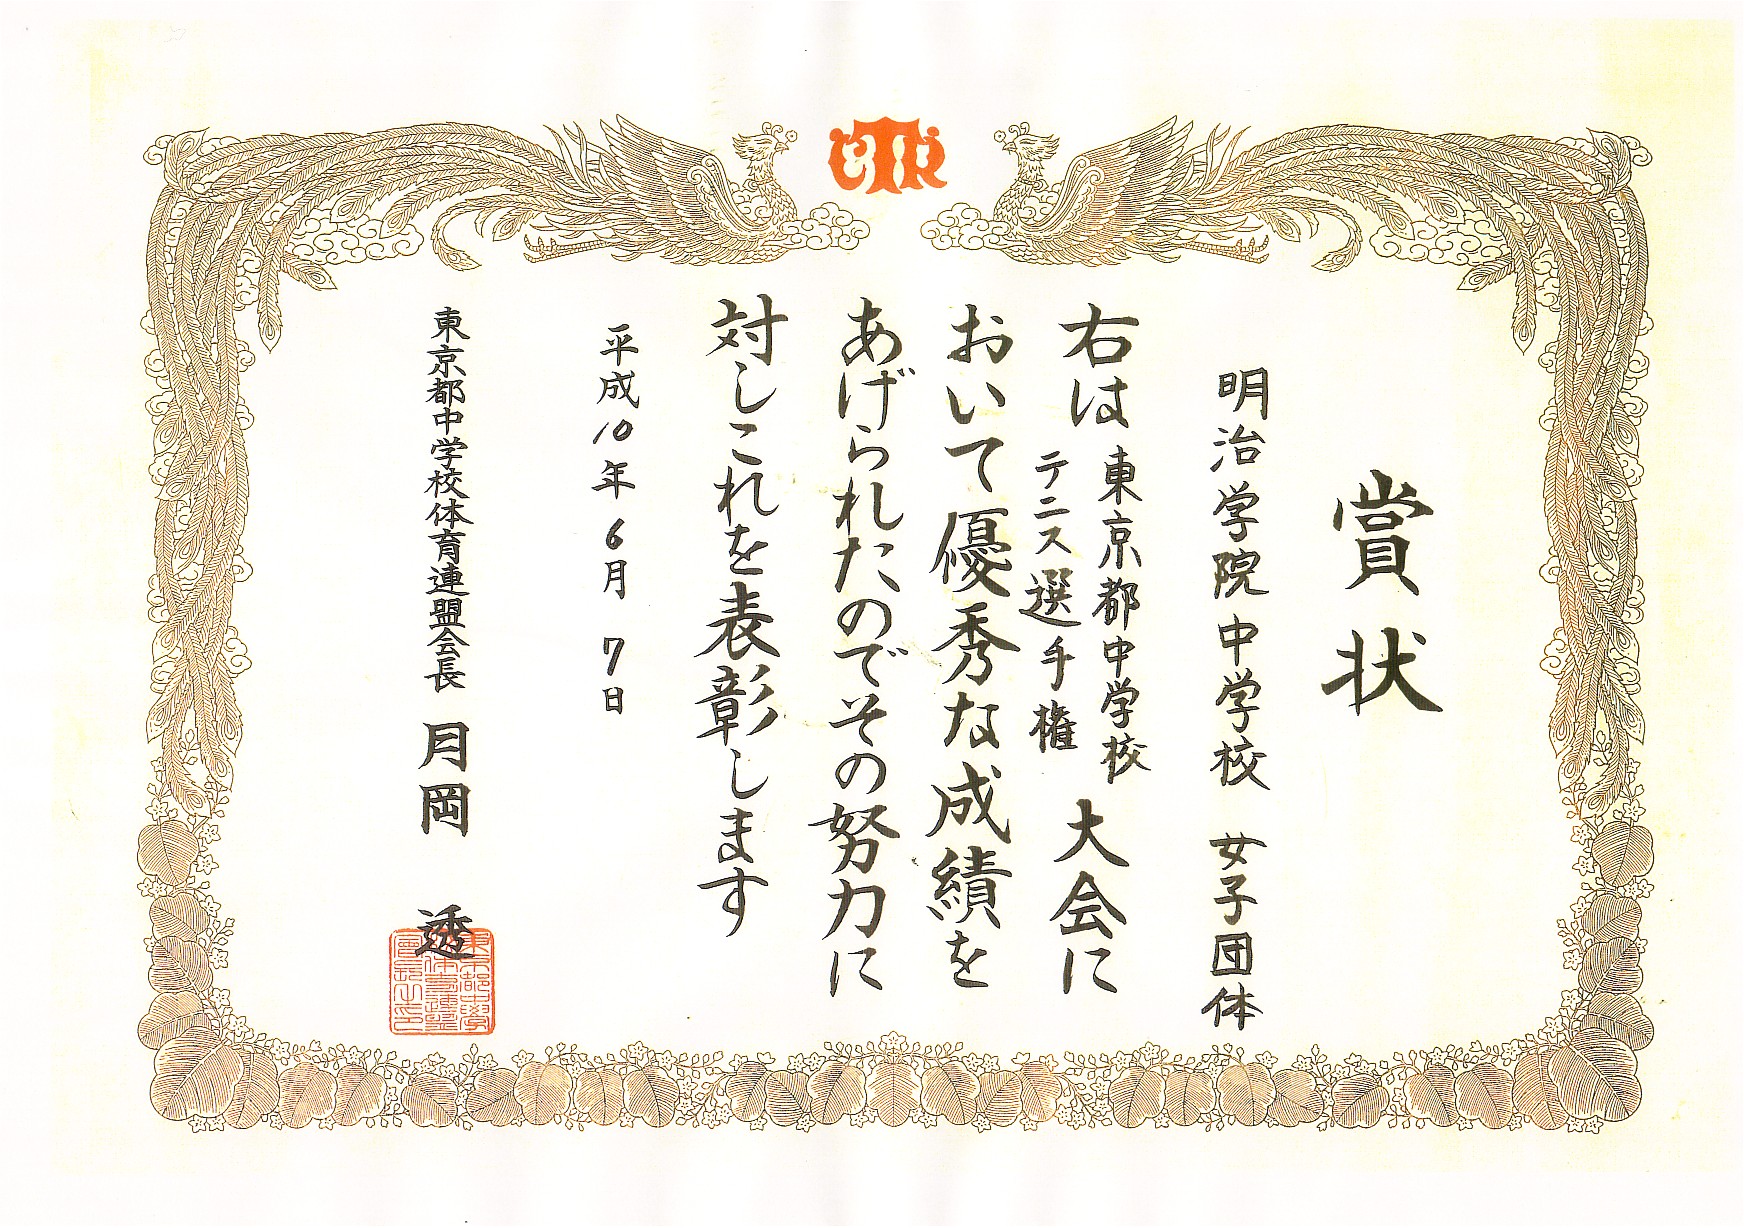 賞状
明治学院中学校 女子団体
右は東京都中学校テニス選手権大会に
おいて優秀な成績を
あげられたのでその努力に
対しこれを表彰します
平成10年6月7日
東京都中学校体育連盟会長 月岡 透